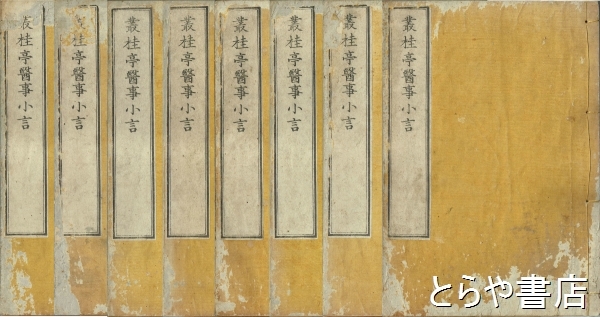 叢桂亭醫事小言
叢桂亭醫事小言
叢桂亭醫事小言
叢桂亭醫事小言
叢桂亭醫事小言
叢桂亭醫事小言
叢桂亭醫事小言
叢桂亭醫事小言
とらや書店